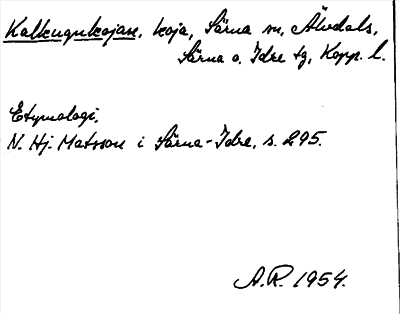 Kallkugukojan, koja, Särna sn, Älvdals,
Särna o. Idre tg, Kopp. l.
Etymologi.
N. Hj. Matsson i Särna-Idre, s. 295.
A.R. 1954.